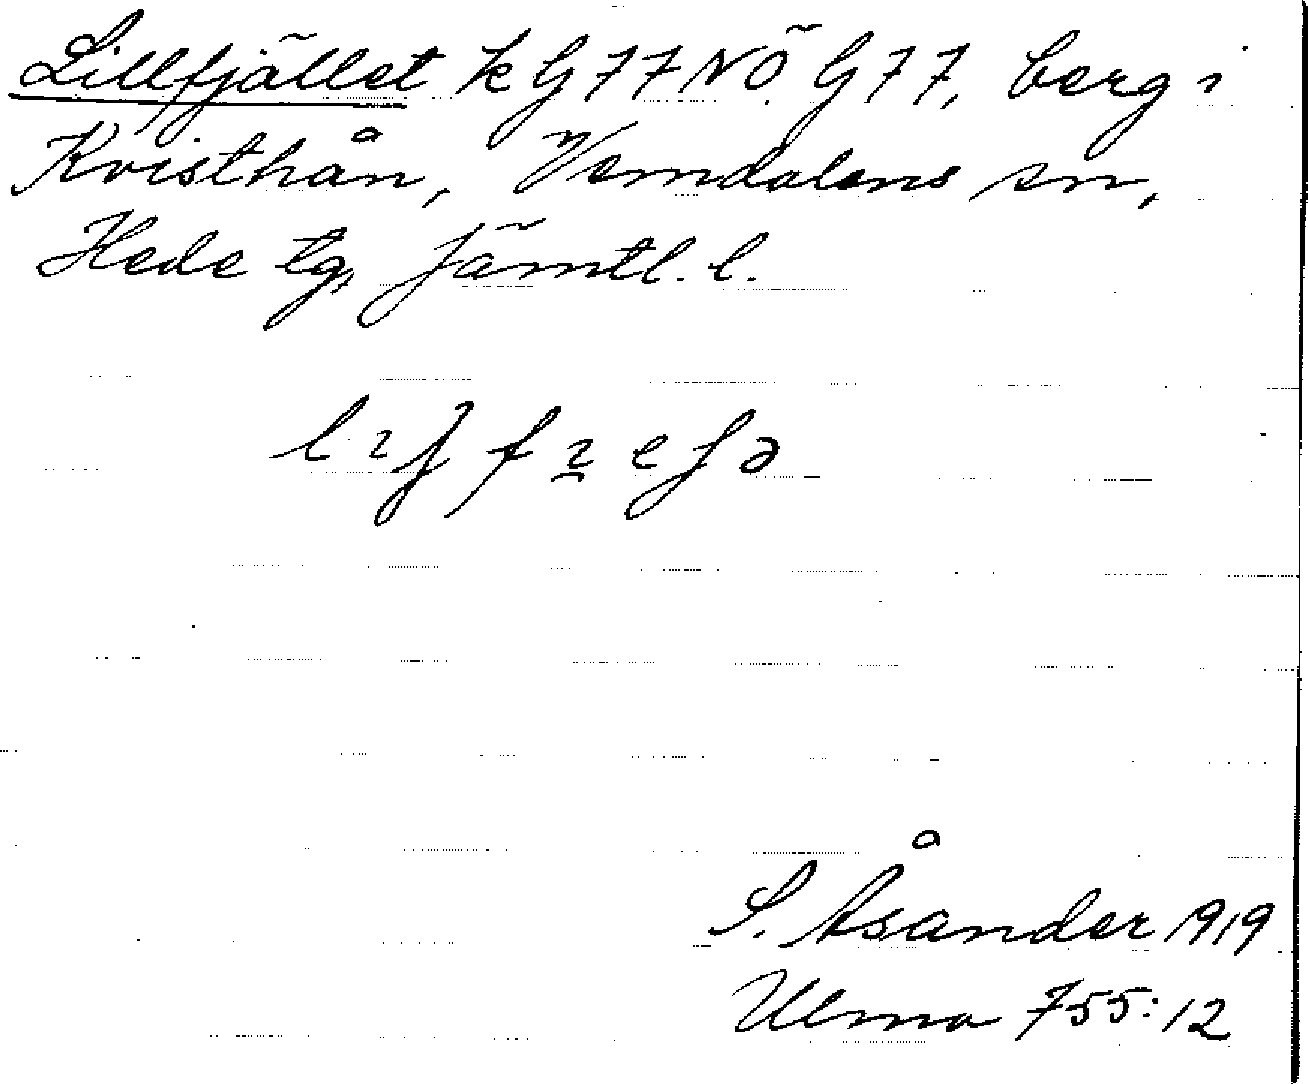 Lillfjället k G 77 NÖ. G 77, berg i
Kvisthån, Vemdalens sn,
Hede tg, Jämtl. l.
S. Åsander 1919
Ulma 755:12